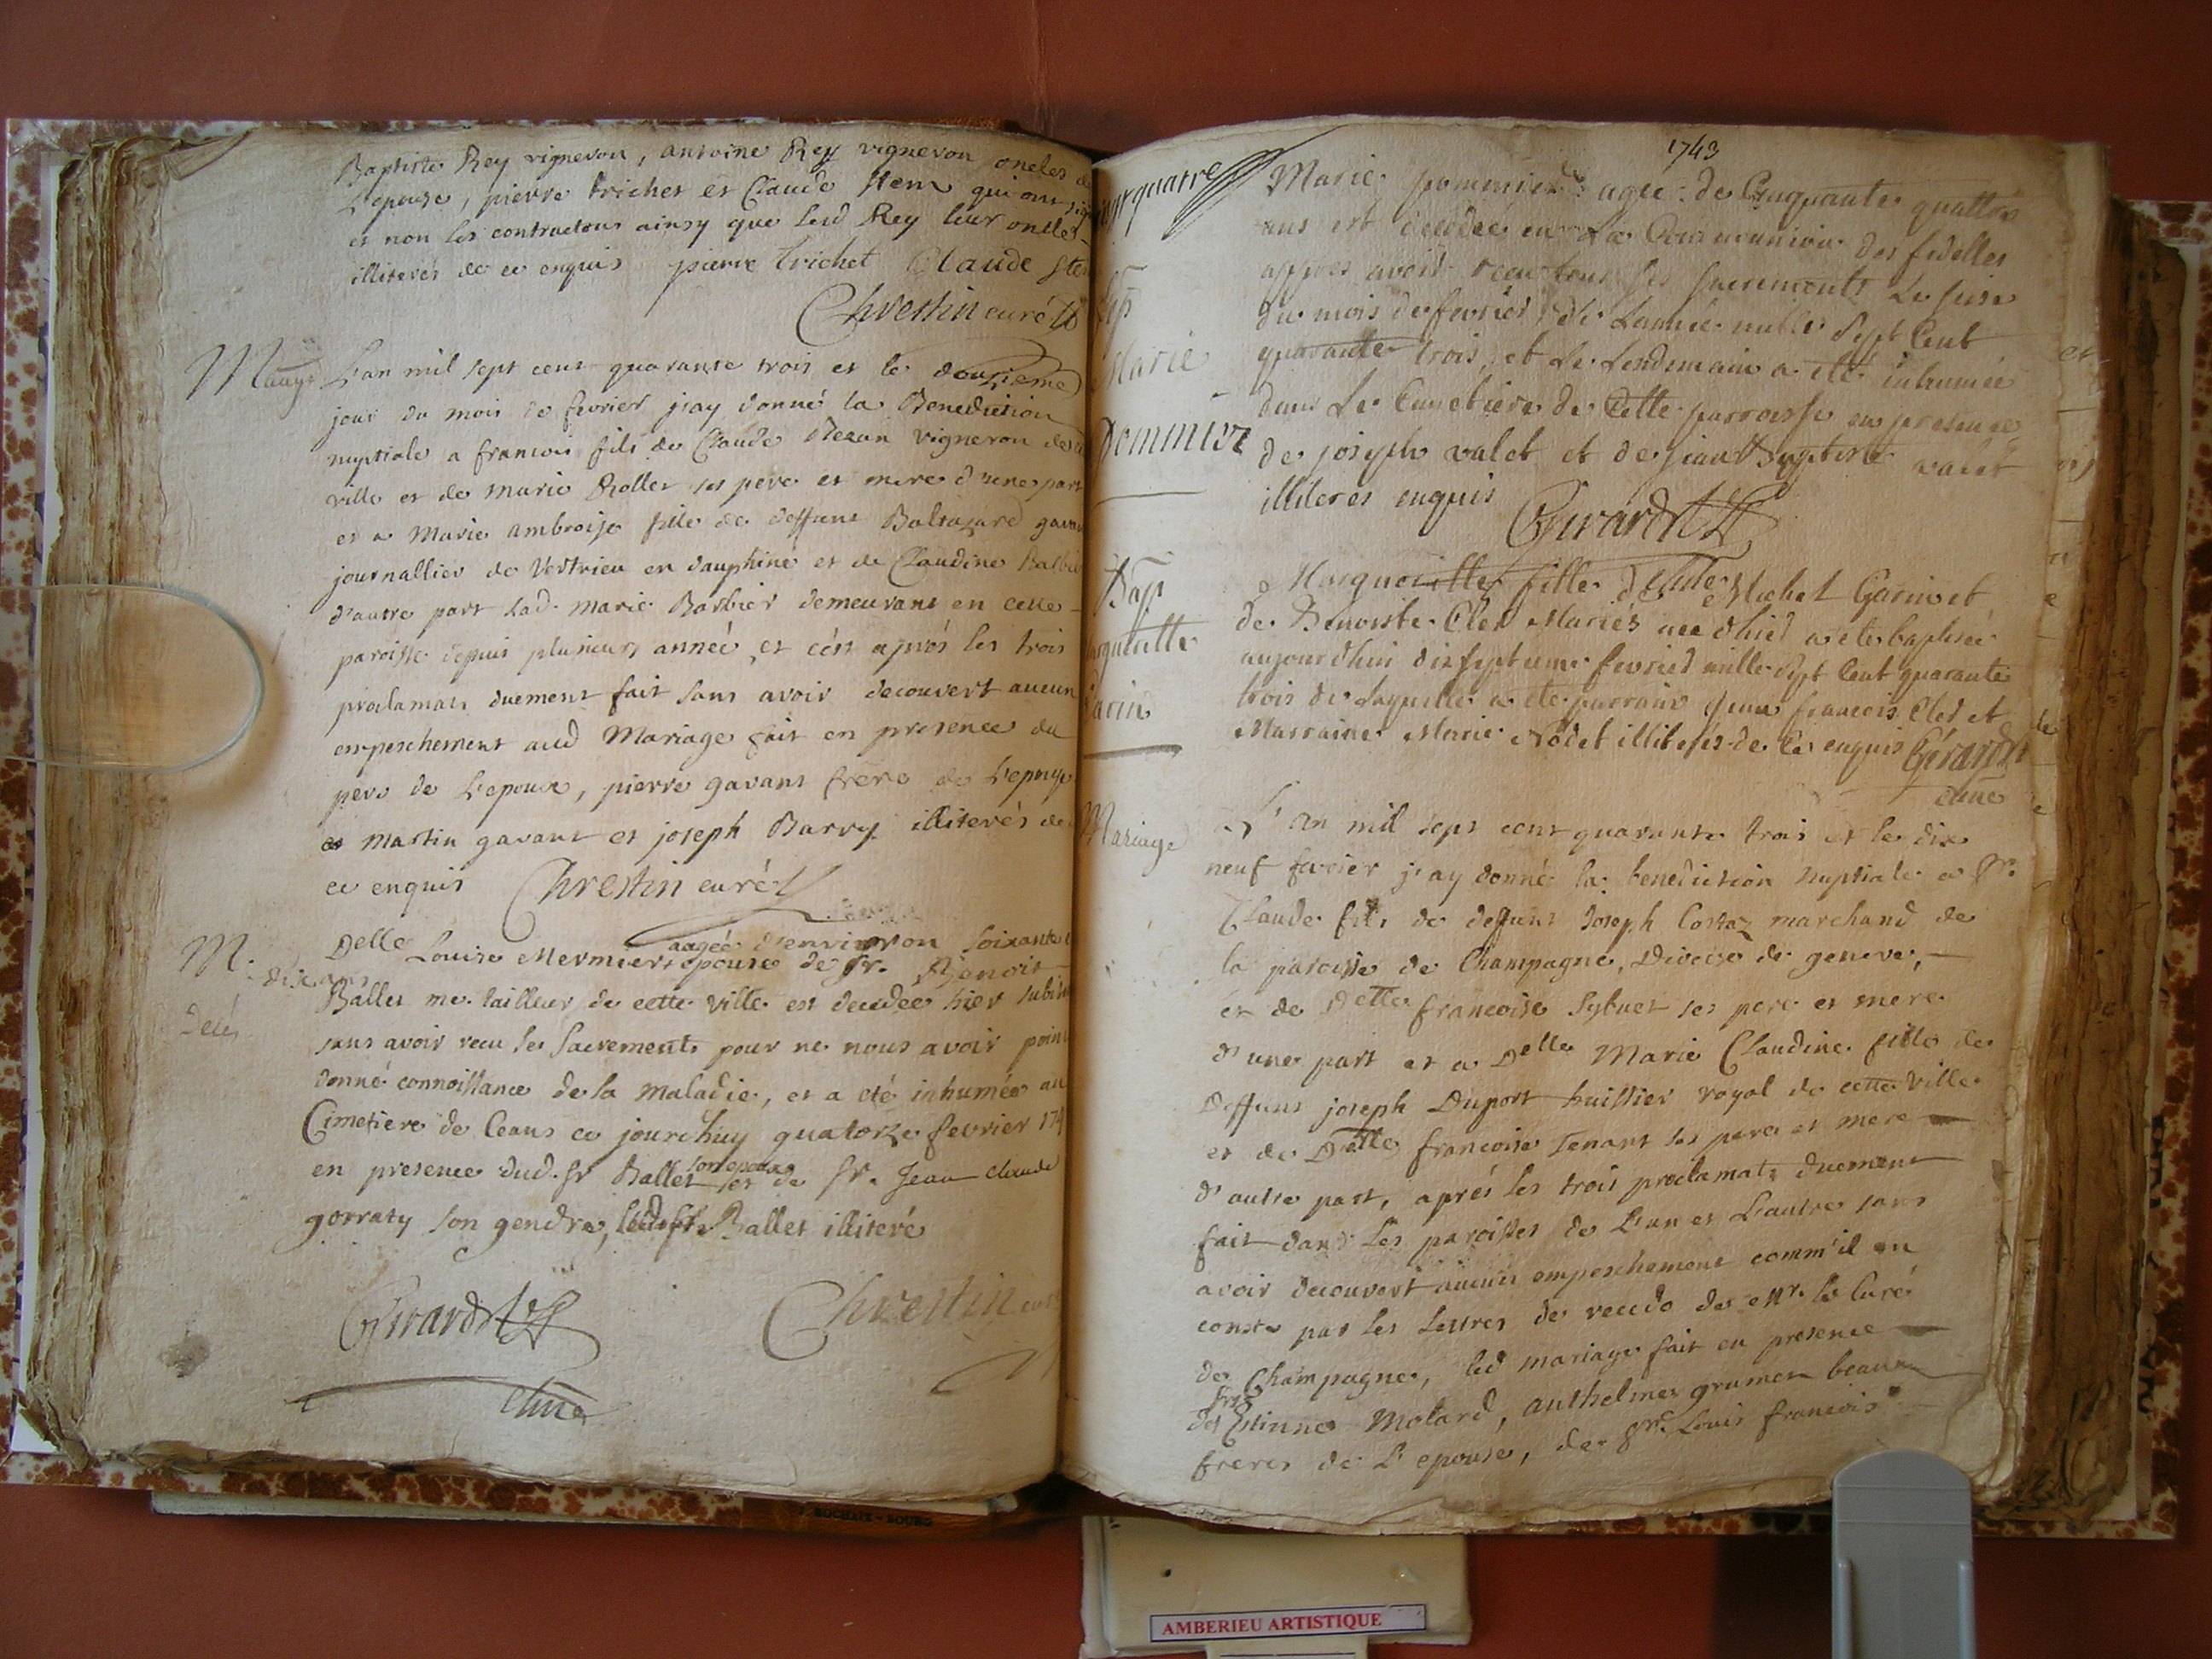 Baptiste Rey vigneron, antoine Rey vigneron oncles de
L'epouse, pierre trichet et Claude Stem qui ont
et non les contractans ainsy que led Rey leur oncles
illiterés de ce enquis pierre trichet Claude
Chrestin curé
Mariage L'an mil sept cent quarante trois et le douzieme
jour du mois de fevrier j'ay donné la Benediction
nuptiale a francois fils de Claude vigneron de
ville et de marie Rollet ses pere et mere d'une part
et a Marie ambroise fille de deffunt Baltazard
journallier de Vertrieu en dauphiné et de Claudine
d'autre part lad. marie Barbier demeurant en cette
paroisse depuis plusieurs année, et c'est aprés les trois
proclamats duement fait sans avoir decouvert aucun
empeschement aud Mariage fait en presence du
pere de L'epoux, pierre gavant frere de L'epouse
et martin gavant et joseph Barry illiterés de
ce enquis Chrestin curé
M. Delle Louise Mermier epouse de Sr. Benoit
aagée d'environ soixante
dix ans
Ballet me. tailleur de cette ville est decedée hier
sans avoir recu les sacrements pour ne nous avoir point
donné connoissance de la maladie, et a eté inhumée au
Cimetiere de Ceans ce jourdhuy quatorze fevrier
en presence dud. Sr Ballet son epoux et de Sr. Jean claude
gorraty son gendre, Ballet illiteré
Girard
Chrestin
1743
quatre
Marie
pommier
Marie pommier agée de Cinquante quattre
ans est decedée en La Communion des fidelles
appres avoir receu tous ses sacrements Le seise
du mois de fevrier de L'année mille Sept Cent
quarante trois, et Le Lendemain a eté inhumée
dans Le Cimetiere de Cette parroisse en presence
de joseph valet et de jean Baptiste valet
illiteres enquis Girard
Bap
Marguerite fille de Michel Garin et
de Benoiste Cler Mariés nee d'hier a ete baptisée
aujourdhui dix septieme fevrier mille Sept Cent quarante
trois de Laquelle a ete parrain Jean francois Cler et
Marraine Marie Nodet illiteres de Ce enquis Girard
Mariage L'an mil sept cent quarante trois et le dix
neuf fevrier j'ay donné la benediction nuptiale a Sr.
Claude fils de deffunt Joseph Costaz marchand de
la paroisse de Champagne, Diocese de geneve,
et de Delle francoise Sybuet ses pere et mere
d'une part et a Delle Marie Claudine fille de
deffunt joseph Duport huissier royal de cette Ville
et de Delle francoise Tenant ses pere et mere
d'autre part, aprés les trois proclamats duement
fait dans les paroisses de L'un et L'autre sans
avoir decouvert aucun empeschement comm'il en
conste par les Lettres de recedo de Mr. le Curé
de Champagne, led mariage fait en presence
des Srs Estienne Molard, anthelme grumet beaux
freres de L'epouse, de Sr. Louis francois
AMBERIEU ARTISTIQUE